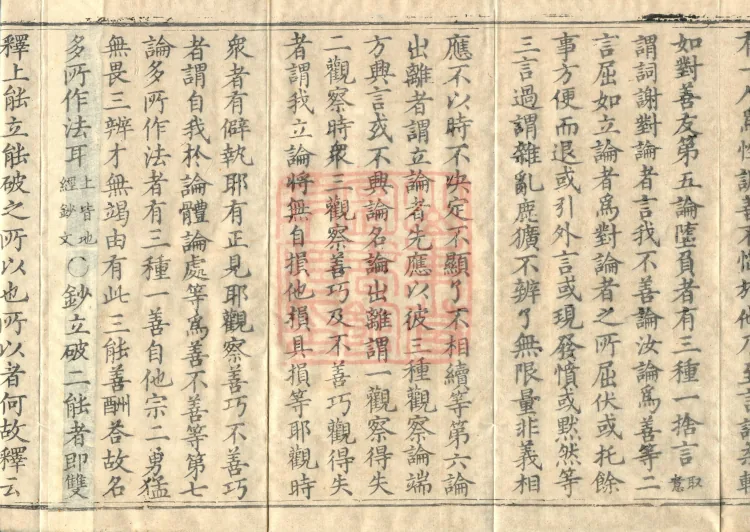 如對善友第五論墮負者有三種一捨言取意
謂詞謝對論者言我不善論汝論爲善等二
言屈如立論者爲對論者之所屈伏或托餘
事方便而退或引外言或現發憤或默然等
三言過謂雜亂麁獷不辨了無限量非義相
應不以時不決定不顯了不相續等第六論
出離者謂立論者先應以彼三種觀察論端
方興言或不興論名論出離謂一觀察得失
二觀察時衆三觀察善巧及不善巧觀得失
者謂我立論將無自損他損具損等耶觀時
衆者有僻執耶有正見耶觀察善巧不善巧
者謂自我於論體論處等爲善不善等第七
論多所作法者有三種一善自他宗二勇猛
無畏三辨才無竭由有此三能善酬答故名
多所作法耳上皆地經鈔文〇鈔立破二能者即雙
釋上能立能破之所以也所以者何故釋云